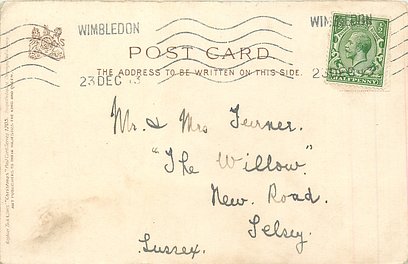 WIMBLEDON
WIMBLEDON
POST CARD.
THE ADDRESS TO BE WRITTEN ON THIS SIDE.
23 DEC 13
23 DEC
HALFPENNY
Mr. & Mrs Turner.
"The Willow"
New. Road.
Selsey.
Sussex.